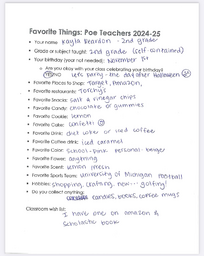 Favorite Things: Poe Teachers 2024-25
• Your name: Kayla Reardon - 2nd grade
• Grade or subject taught: 2nd grade (self contained)
• Your birthday (year not needed): November 1st
o Are you okay with your class celebrating your birthday?
YES/NO Let's party - the day after Halloween
• Favorite Places to Shop: Target, Amazon,
• Favorite restaurants: Torchys
• Favorite Snacks: salt & vinegar chips
• Favorite Candy: chocolate or gummies
• Favorite Cookie: lemon
• Favorite Cake: confetti
• Favorite Drink: diet coke or iced coffee
• Favorite Coffee drink: iced caramel
• Favorite Color: School-pink personal-beige
• Favorite Flower: anything
• Favorite Scent: lemon fresh
• Favorite Sports Team: University of Michigan Football
• Hobbies: shopping, crafting, now... golfing!
• Do you collect anything:
candles, books, coffee mugs
Classroom wish list:
I have one on amazon &
Scholastic book